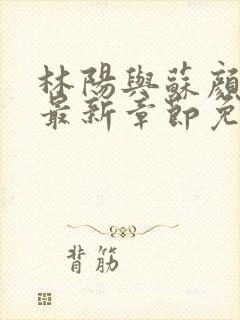 林陽與蘇顏
最新章節免
背筋